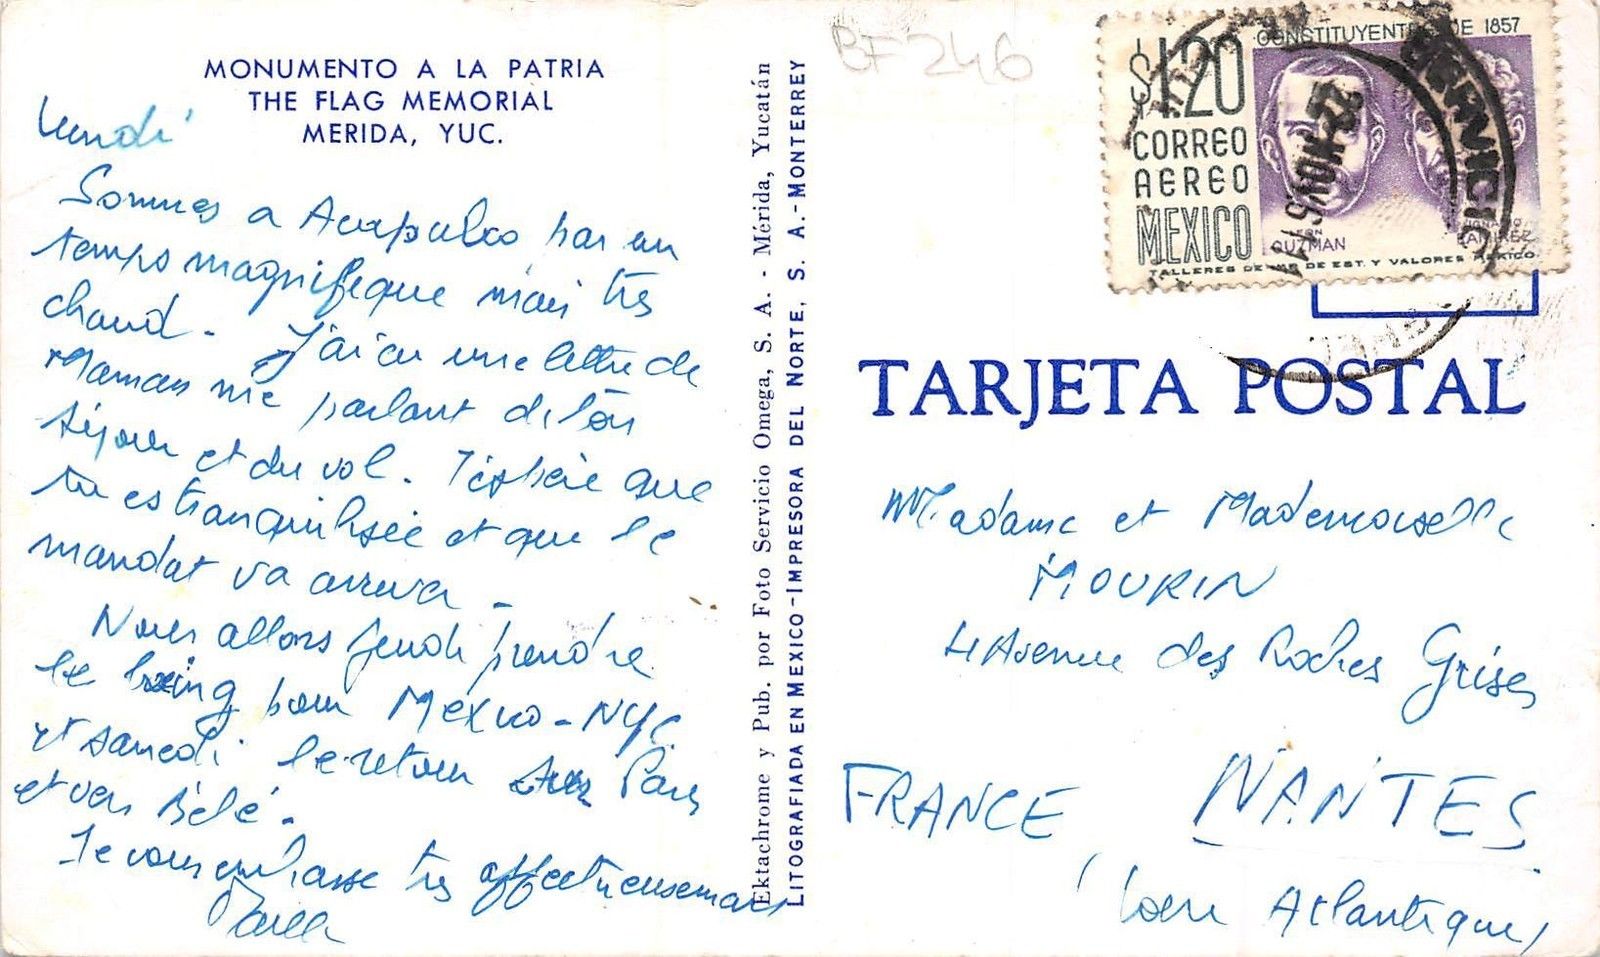 MONUMENTO A LA PATRIA
THE FLAG MEMORIAL
MERIDA, YUC.
Lundi
Sommes a Acapulco par un
temps magnifique mais très
chaud. J'ai eu une lettre de
Maman me parlant de ton
séjour et du vol. J'espère que
tu es tranquilisée et que le
mandat va arriver.
Nous allons jeudi prendre
le boeing pour Mexico-NYC
et samedi le retour sur Paris
et vers Bébé.
Je vous embrasse très affectueusement
Ektachrome y Pub. por Foto Servicio Omega, S. A. - Mérida, Yucatán
LITOGRAFIADA EN MEXICO-IMPRESORA DEL NORTE, S. A.-MONTERREY
BF 246
CONSTITUYENTES DE 1857
$1.20
CORREO
AEREO
MEXICO
LEON
GUZMAN
IGNACIO
RAMIREZ
TALLERES DE IMP. DE EST. Y VALORES MEXICO
SERVICIO
22 NOV
TARJETA POSTAL
Madame et Mademoiselle
MOURIN
4 Avenue des Roches Grises
NANTES
FRANCE
(Loire Atlantique)